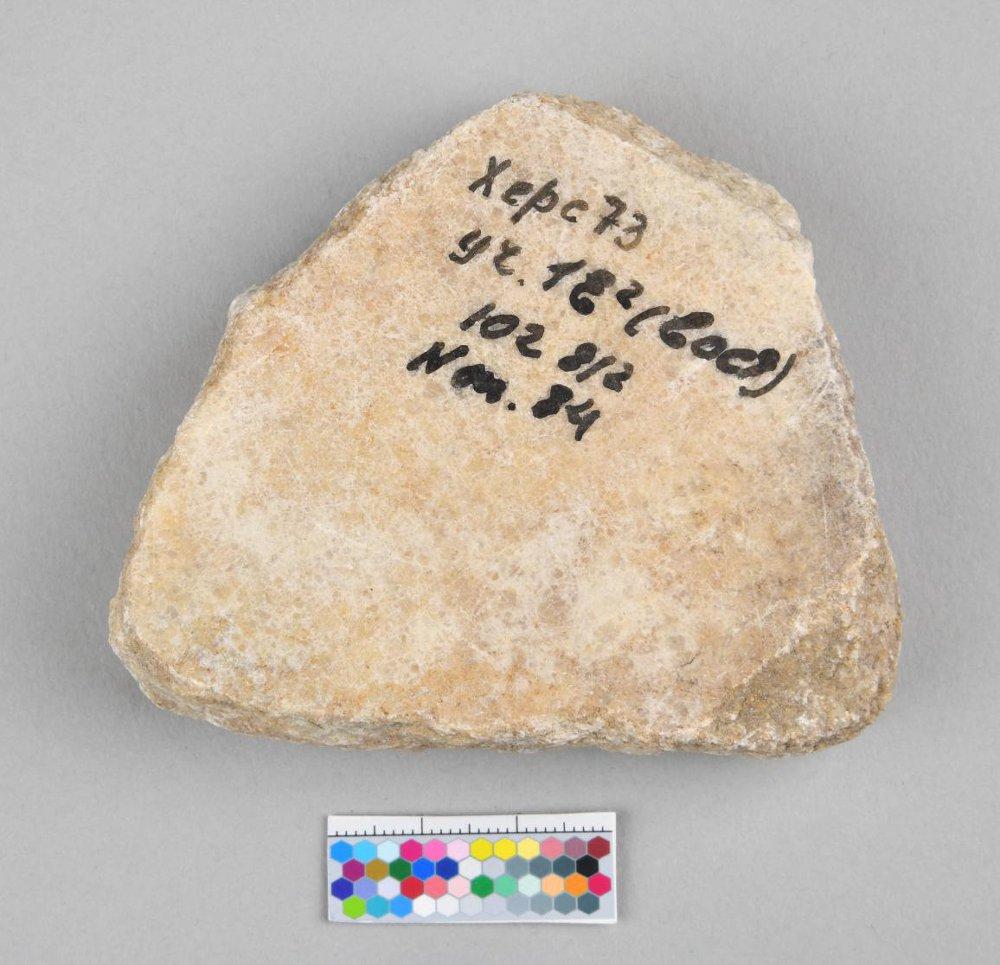 Херс 73
уч. 18² (вост)
102 812
N оп. 84